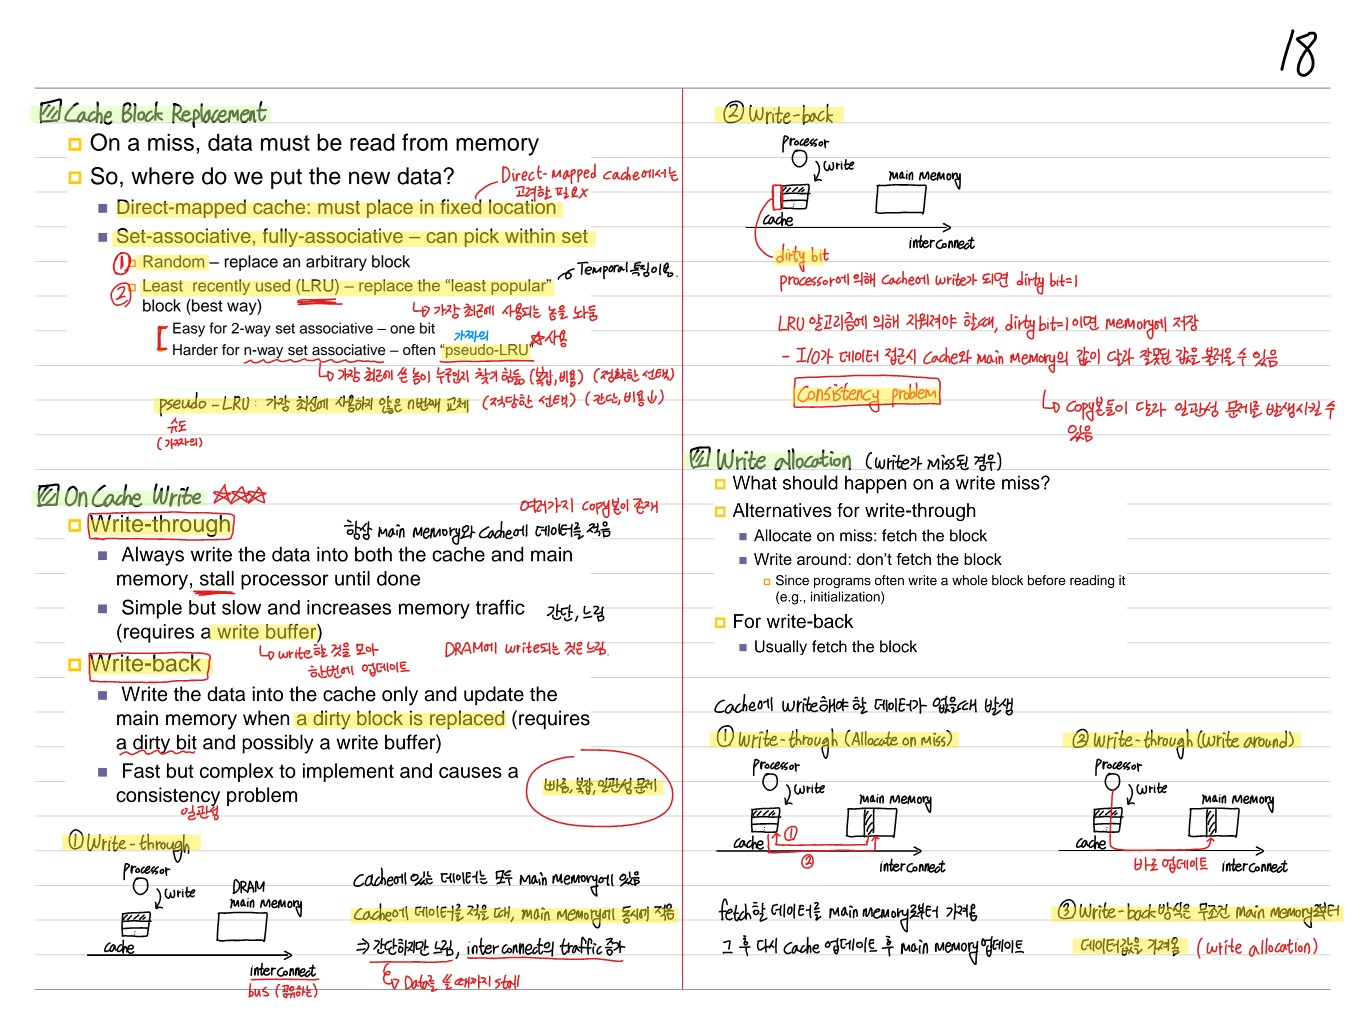 18
Cache Block Replacement
On a miss, data must be read from memory
So, where do we put the new data?
Direct-mapped cache에서는
고려할 필요X
Direct-mapped cache: must place in fixed location
Set-associative, fully-associative – can pick within set
① Random – replace an arbitrary block
Temporal 특징이용.
② Least recently used (LRU) – replace the “least popular”
block (best way)
가장 최근에 사용되는 놈을 놔둠
Easy for 2-way set associative – one bit
가짜의
Harder for n-way set associative – often “pseudo-LRU”
☆사용
가장 최근에 쓴 놈이 누구인지 찾기 힘듦 (복잡, 비용) (정확한 선택)
pseudo-LRU: 가장 최신에 사용하지 않은 n번째 교체 (적당한 선택) (간단, 비용↓)
슈도
(가짜의)
On Cache Write ☆☆☆
여러가지 copy본이 존재
Write-through
항상 main memory와 cache에 데이터를 적음
Always write the data into both the cache and main
memory, stall processor until done
Simple but slow and increases memory traffic
간단, 느림
(requires a write buffer)
write할 것을 모아
한번에 업데이트
DRAM에 write되는 것은 느림.
Write-back
Write the data into the cache only and update the
main memory when a dirty block is replaced (requires
a dirty bit and possibly a write buffer)
Fast but complex to implement and causes a
consistency problem
일관성
빠름, 복잡, 일관성 문제
① Write-through
Processor
write
DRAM
main memory
cache
interconnect
bus (공유하는)
cache에 있는 데이터는 모두 main memory에 있음
cache에 데이터를 적을 때, main memory에 동시에 적음
⇒ 간단하지만 느림, interconnect의 traffic 증가
Data를 쓸 때까지 stall
② Write-back
Processor
write
main memory
cache
interconnect
dirty bit
processor에 의해 cache에 write가 되면 dirty bit=1
LRU 알고리즘에 의해 지워져야 할때, dirty bit=1이면 memory에 저장
- I/O가 데이터 접근시 cache와 main memory의 값이 달라 잘못된 값을 불러올 수 있음
Consistency problem
copy본들이 달라 일관성 문제를 발생시킬 수
있음
Write allocation (write가 miss된 경우)
What should happen on a write miss?
Alternatives for write-through
Allocate on miss: fetch the block
Write around: don’t fetch the block
Since programs often write a whole block before reading it
(e.g., initialization)
For write-back
Usually fetch the block
Cache에 write해야 할 데이터가 없을때 발생
① Write-through (Allocate on miss)
Processor
write
main memory
cache
①
②
interconnect
fetch할 데이터를 main memory로부터 가져옴
그 후 다시 cache 업데이트 후 main memory 업데이트
② Write-through (write around)
Processor
write
main memory
cache
바로 업데이트
interconnect
③ Write-back방식은 무조건 main memory로부터
데이터값을 가져옴 (write allocation)